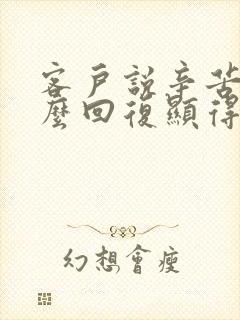 客戶說辛苦
麼回復顯得
幻想會瘦